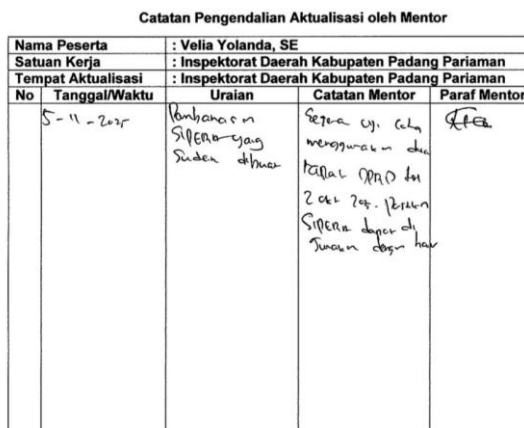 Catatan Pengendalian Aktualisasi oleh Mentor
Nama Peserta : Velia Yolanda, SE
Satuan Kerja : Inspektorat Daerah Kabupaten Padang Pariaman
Tempat Aktualisasi : Inspektorat Daerah Kabupaten Padang Pariaman
No Tanggal/Waktu Uraian Catatan Mentor Paraf Mentor
5-11-2025
SIPERA yang
Sudah dibuat
Segera uji coba
menggunakan data
DPRD
SIPERA dapat di
gunakan dengan